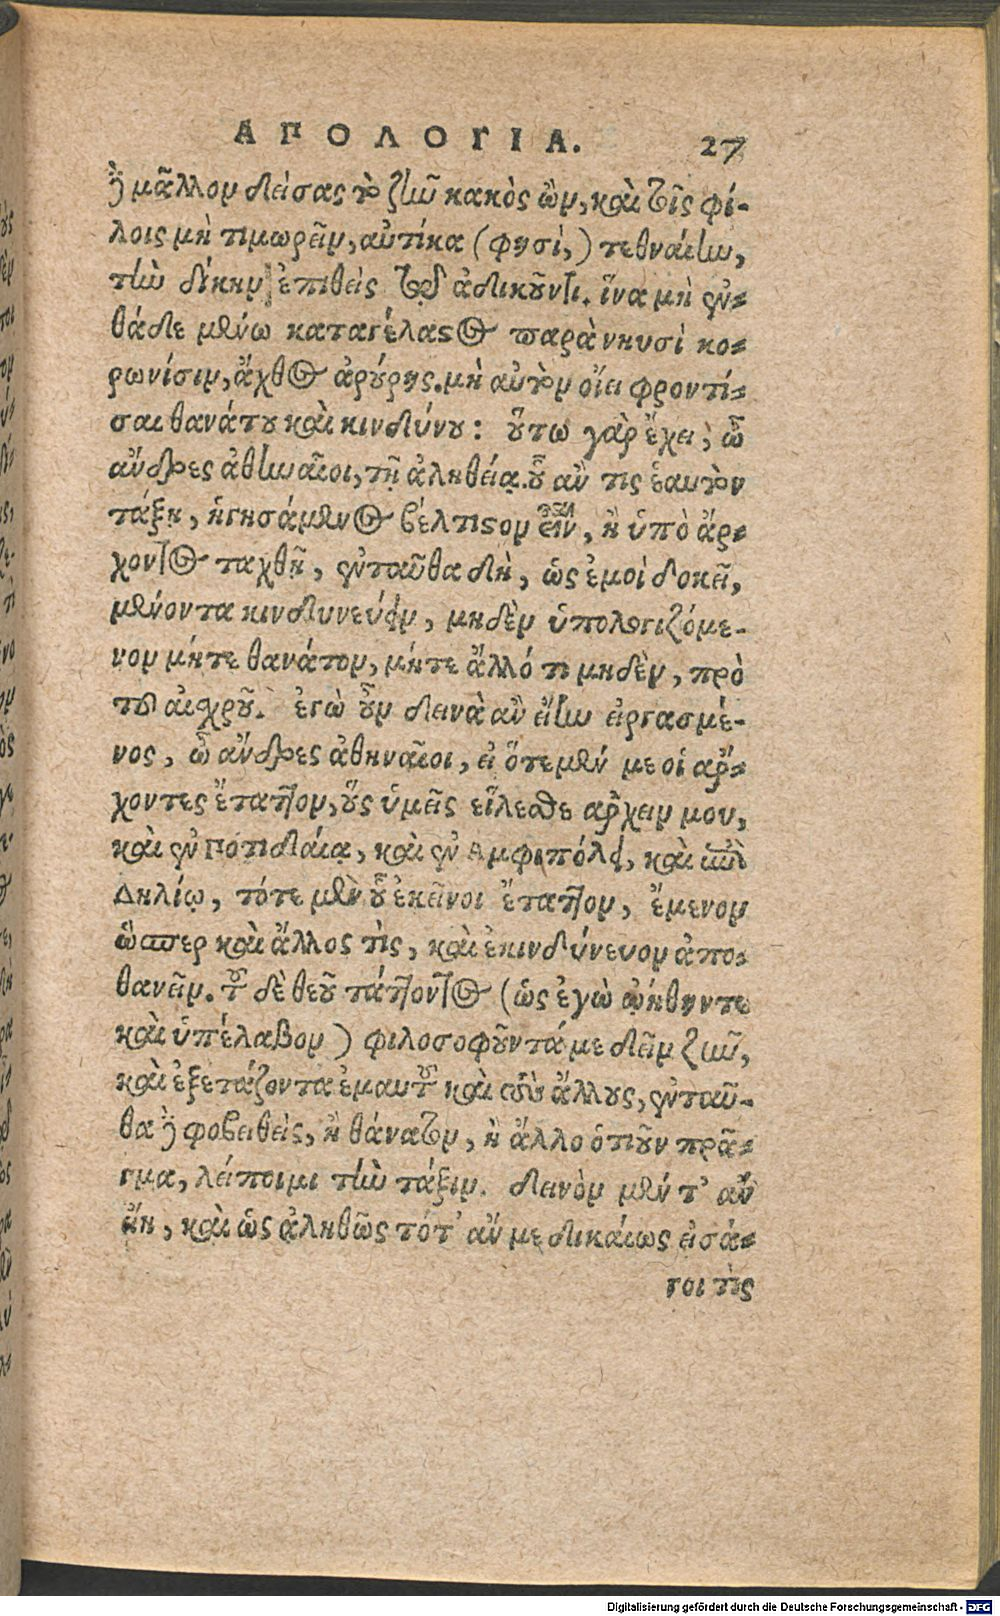 ΑΠΟΛΟΓΙΑ. 27
ȣ̀ μᾶλλον δείσας τὸ ζῆν κακὸς ὢν, καὶ τοῖς φί-
λοις μὴ τιμωρεῖν, αὐτίκα (φησὶ,) τεθναίην,
τὴν δίκην ἐπιθεὶς τῷ ἀδικοῦντι. ἵνα μὴ ἐν-
θάδε μένω καταγέλαστος παρὰ νηυσὶ κο-
ρωνίσιν, ἄχθος ἀρούρης. μὴ αὐτὸν οἴει φροντί-
σαι θανάτου καὶ κινδύνου: οὕτω γὰρ ἔχει, ὦ
ἄνδρες ἀθηναῖοι, τῇ ἀληθείᾳ. οὗ ἄν τις ἑαυτὸν
τάξῃ, ἡγησάμενος βέλτιστον εἶναι, ἢ ὑπὸ ἄρ-
χοντος ταχθῇ, ἐνταῦθα δὴ, ὡς ἐμοὶ δοκεῖ,
μένοντα κινδυνεύειν, μηδὲν ὑπολογιζόμε-
νον μήτε θανάτον, μήτε ἄλλό τι μηδὲν, πρὸ
τοῦ αἰσχροῦ. ἐγὼ οὖν δεινὰ ἂν εἴην εἰργασμέ-
νος, ὦ ἄνδρες ἀθηναῖοι, εἰ ὅτε μέν με οἱ ἄρ-
χοντες ἔταττον, οὓς ὑμεῖς εἵλεσθε ἄρχειν μου,
καὶ ἐν Ποτιδαίᾳ, καὶ ἐν Ἀμφιπόλει, καὶ ἐπὶ
Δηλίῳ, τότε μὲν οὗ ἐκεῖνοι ἔταττον, ἔμενον
ὥσπερ καὶ ἄλλος τὶς, καὶ ἐκινδύνευον ἀπο-
θανεῖν. τοῦ δὲ θεοῦ τάττοντος (ὡς ἐγὼ ᾠήθην τε
καὶ ὑπέλαβον) φιλοσοφοῦντά με δεῖν ζῆν,
καὶ ἐξετάζοντα ἐμαυτὸν καὶ τοὺς ἄλλους, ἐνταῦ-
θα ȣ̀ φοβειθεὶς, ἢ θάνατον, ἢ ἄλλο ὁτιοῦν πρᾶ-
γμα, λείποιμι τὴν τάξιν. δεινὸν μέν τ' ἂν
εἴη, καὶ ὡς ἀληθῶς τότ' ἄν με δικαίως εἰσά-
γοι τὶς
Digitalisierung gefördert durch die Deutsche Forschungsgemeinschaft - DFG